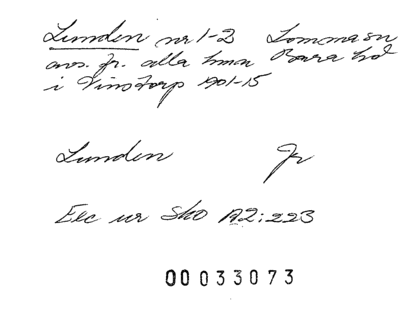 Lunden nr 1-2 Lomma sn
avs. fr. alla hman Bara hd
i Vinstorp 1901-15
Lunden Jr
Exc ur Sko A2:223
00033073